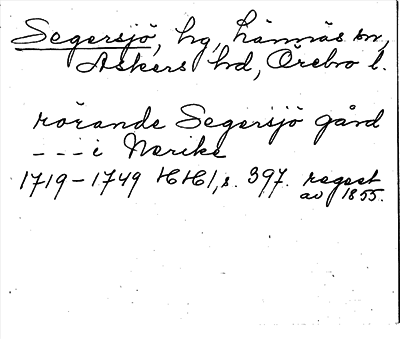 Segersjö, hg, Lännäs sn,
Askers hd, Örebro l.
rörande Segersjö gård
--- i Nerike
1719-1749 HH1, s. 397. regest
av 1855.